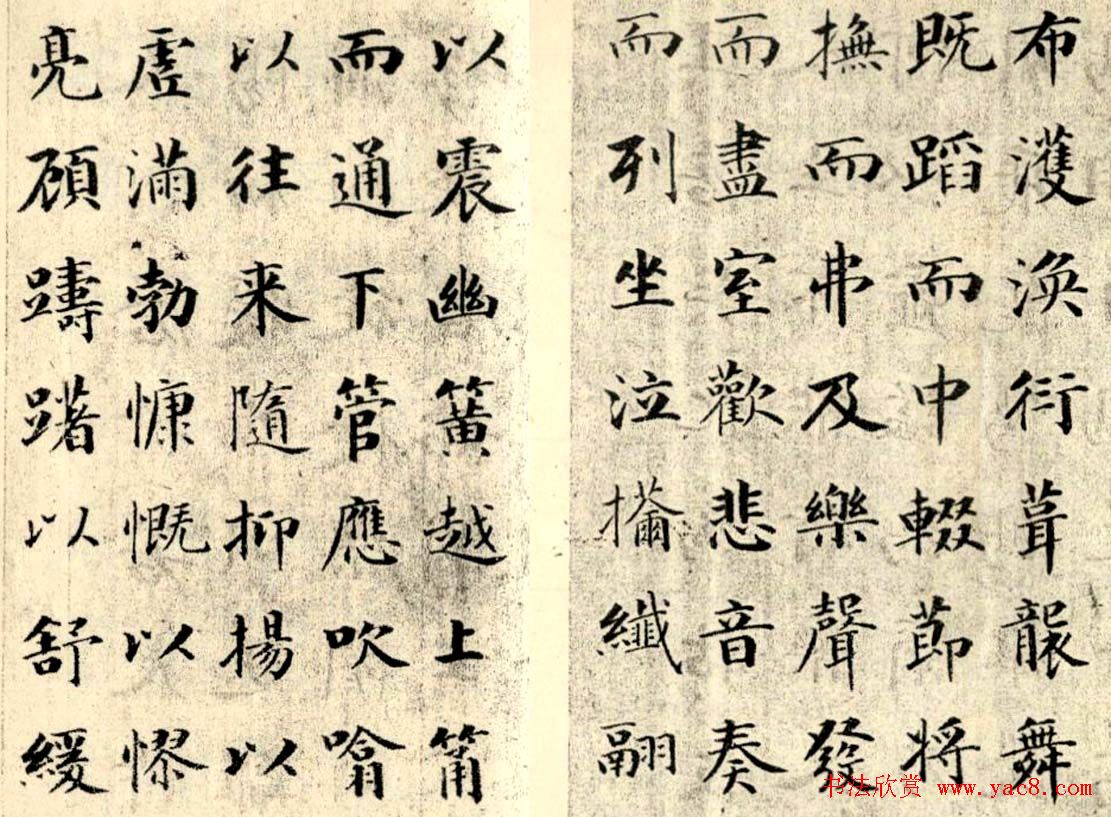 布濩渙衍葺襲舞
既蹈而中輟節將
撫而弗及樂聲發
而盡室歡悲音奏
而列坐泣擶纖翮
以震幽簧越上筩
而通下管應吹噏
以往来隨抑揚以
虛滿勃慷慨以憀
亮顧躊躇以舒緩
书法欣赏 www.yac8.com